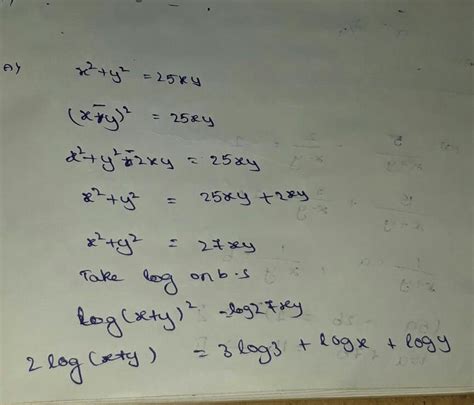 A)
x²+y² = 25xy
(x-y)² = 25xy
x²+y²-2xy = 25xy
x²+y² = 25xy+2xy
x²+y² = 27xy
Take log on b.s
log(x+y)² = log27xy
2log(x+y) = 3log3 + logx + logy